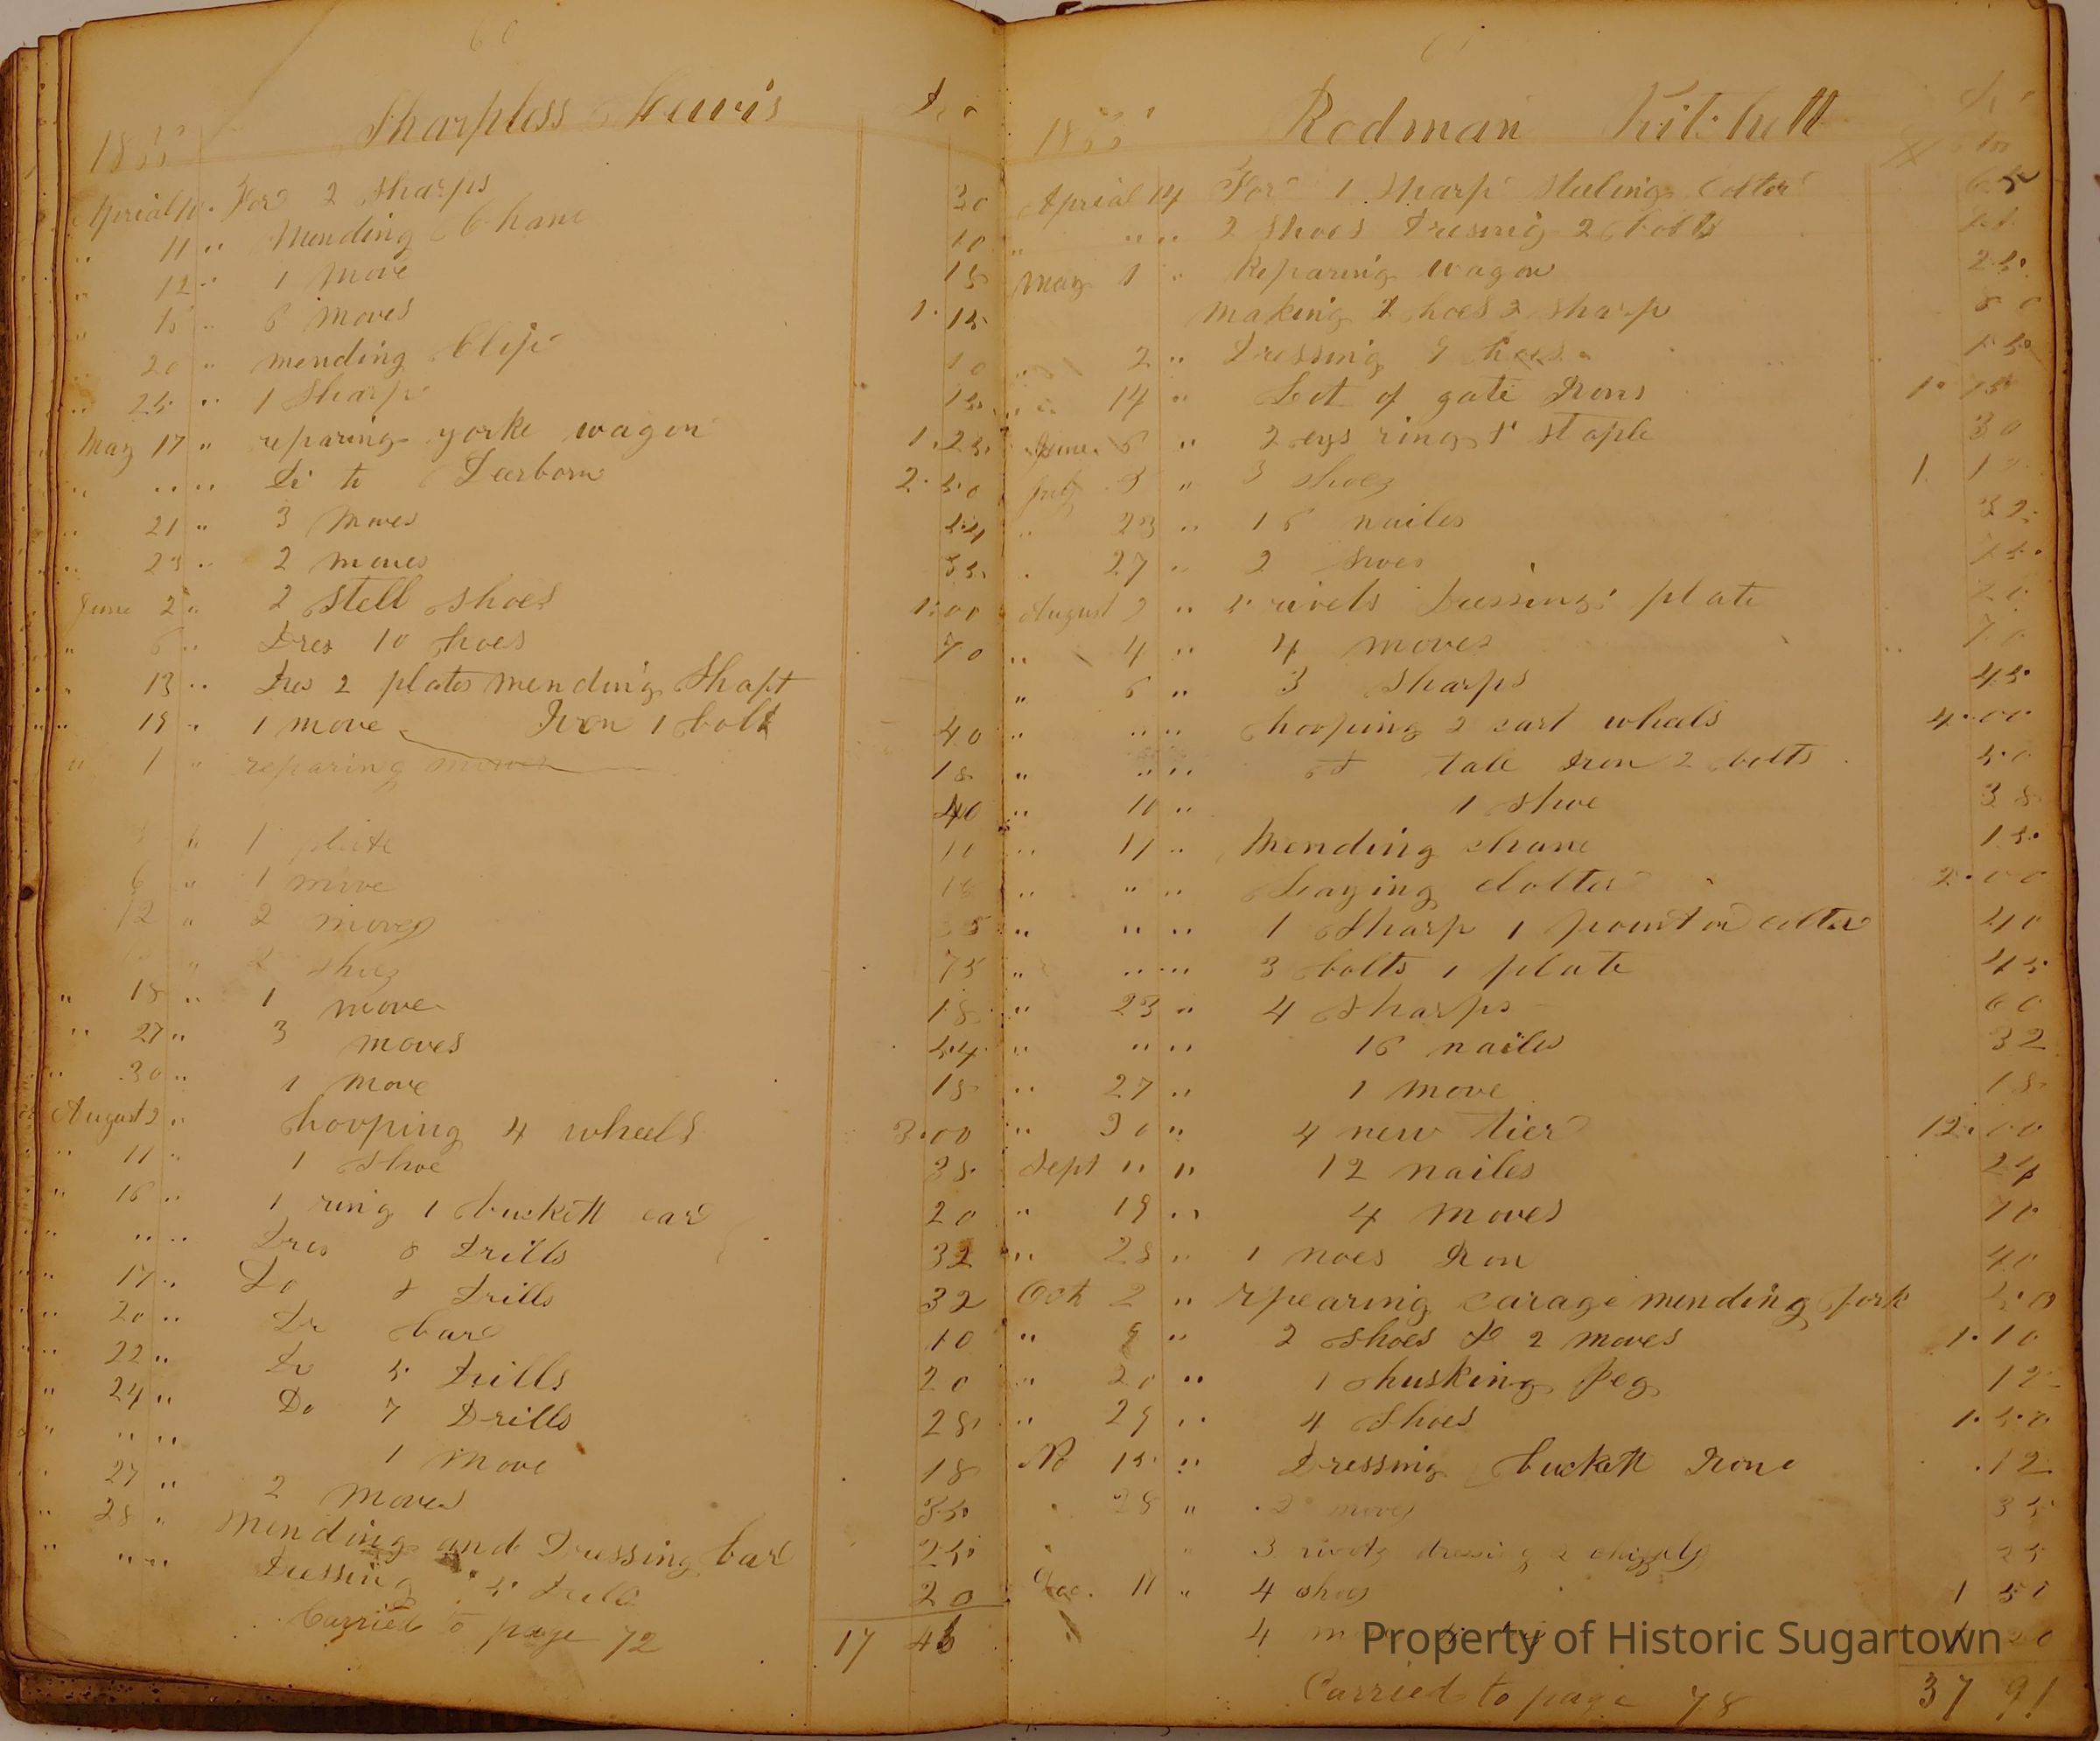 60
Sharpless Lewis Dr
1855
Aprial 10 " For 2 Sharps 30
" 11 " Mending Chane 10
" 12 " 1 move 18
" 15 " 6 moves 1.15
" 20 " mending Clip 10
" 25 " 1 Sharp 15
May 17 " reparing yorke wagon 1.25
" " " to Dearborn 2.50
" 21 " 3 moves 54
" 23 " 2 moves 35
June 2 " 2 Stell Shoes 1.00
" 6 " Dres 10 hoes 70
" 13 " Dres 2 plates mending Shaft
" 19 " 1 move Iron 1 bolt 40
" 1 " reparing mower 18
40
" 1 plate 11
6 " 1 move 18
12 " 2 moves 35
" 2 shoes 75
" 18 " 1 move 18
" 27 " 3 moves 54
" 30 " 1 move 18
August 2 " hooping 4 wheels 3.00
" 11 " 1 Shoe 38
" 16 " 1 ring 1 buckett ear 20
" " " Dres 8 Drills 32
" 17 " Do 8 Drills 32
" 20 " Dr bar 10
" 22 " Do 5 Drills 20
" 24 " Do 7 Drills 28
" " " 1 Move 18
" 27 " 2 moves 35
" 28 " Mending and Dressing bar 25
" " " Dressing 5 Drills 20
Carried to page 72 17 43
61
Rodman Kitchell Dr
1855
Aprial 14 For 1 Sharp Steeling Colter 65
" " " 2 Shoes Dresing 2 bolts
May 1 " Reparing wagon 25
making 2 hoes 2 sharp 50
" 2 " Dressing 9 hoes
" 14 " Set of gate Irons 1.75
June 6 " 2 eys rings & Staple 30
July 3 " 3 Shoes 1 12
" 23 " 16 nailes 32
" 27 " 2 Shoes 75
August 2 " 5 rivets Dressing plate 20
" 4 " 4 moves 70
" 6 " 3 Sharps 45
" " " hooping 2 cart wheels 4.00
" " " tale Iron 2 bolts 50
" 10 " 1 Shoe 38
" 11 " Mending chane 15
" " " Laying Colter 2.00
" " " 1 Sharp 1 point on colter 40
" " " 3 bolts 1 plate 45
" 23 " 4 Sharps 60
" " " 16 nailes 32
" 27 " 1 move 18
" 30 " 4 new tier 12.00
Sept " " 12 nailes 24
" 19 " 4 moves 70
" 28 " 1 noes Iron 40
Oct 2 " rpearing carage mending fork 50
" 9 " 2 Shoes & 2 moves 1.10
" 20 " 1 husking Peg 12
" 29 " 4 Shoes 1.50
No 15 " Dressing buckett Irone .12
" 28 " 2 moves 35
" 3 rivets dressing 2 chizzels 25
Dec. 11 " 4 shoes 1 50
4
Carried to page 78 37 91
Property of Historic Sugartown